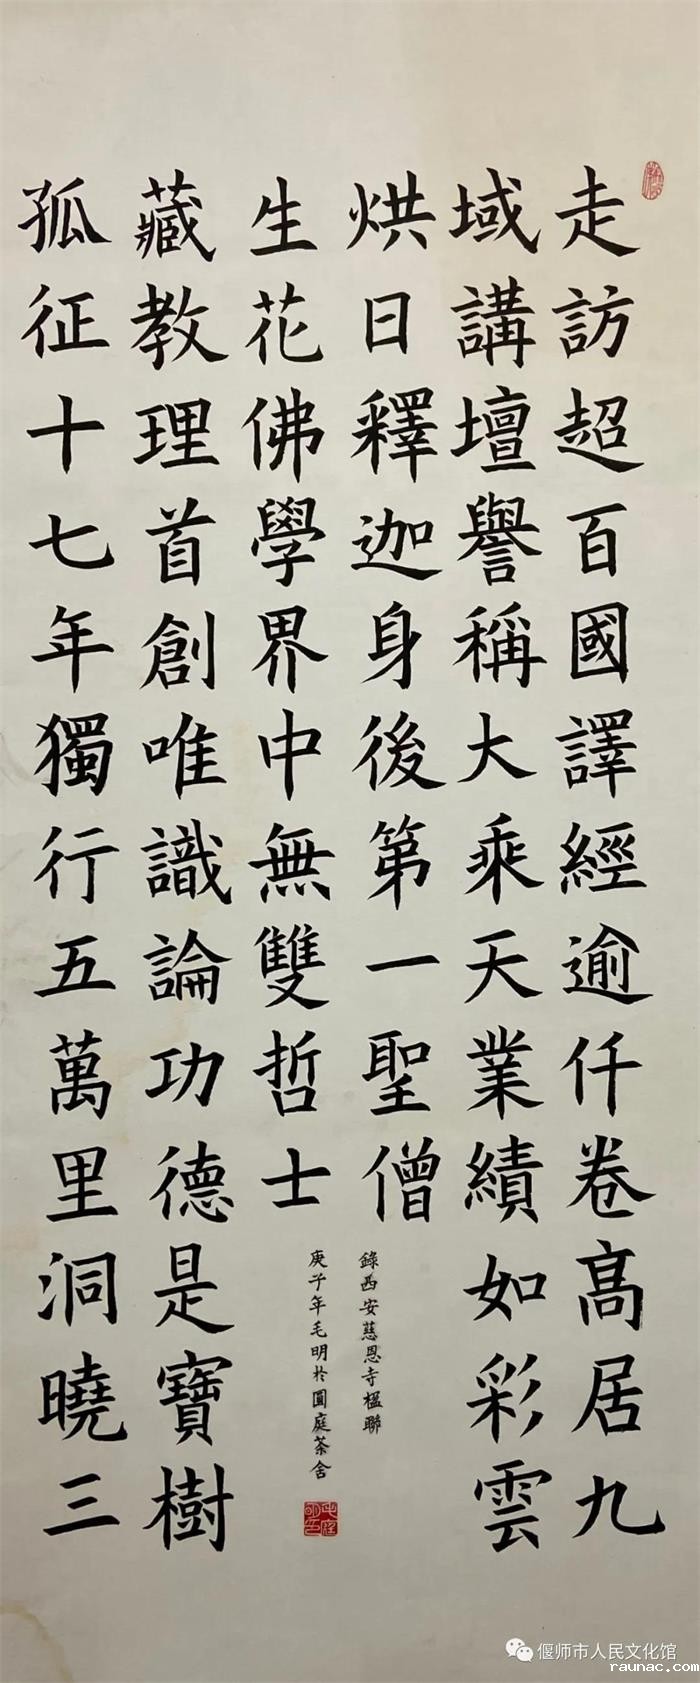 走訪超百國譯經逾仟卷髙居九
域講壇譽稱大乘天業績如彩雲
烘日釋迦身後第一聖僧
孤征十七年獨行五萬里洞曉三
藏教理首創唯識論功德是寶樹
生花佛學界中無雙哲士
錄西安慈恩寺楹聯
庚子年毛明於圓庭茶舍
偃师市人民文化馆
raunac.com